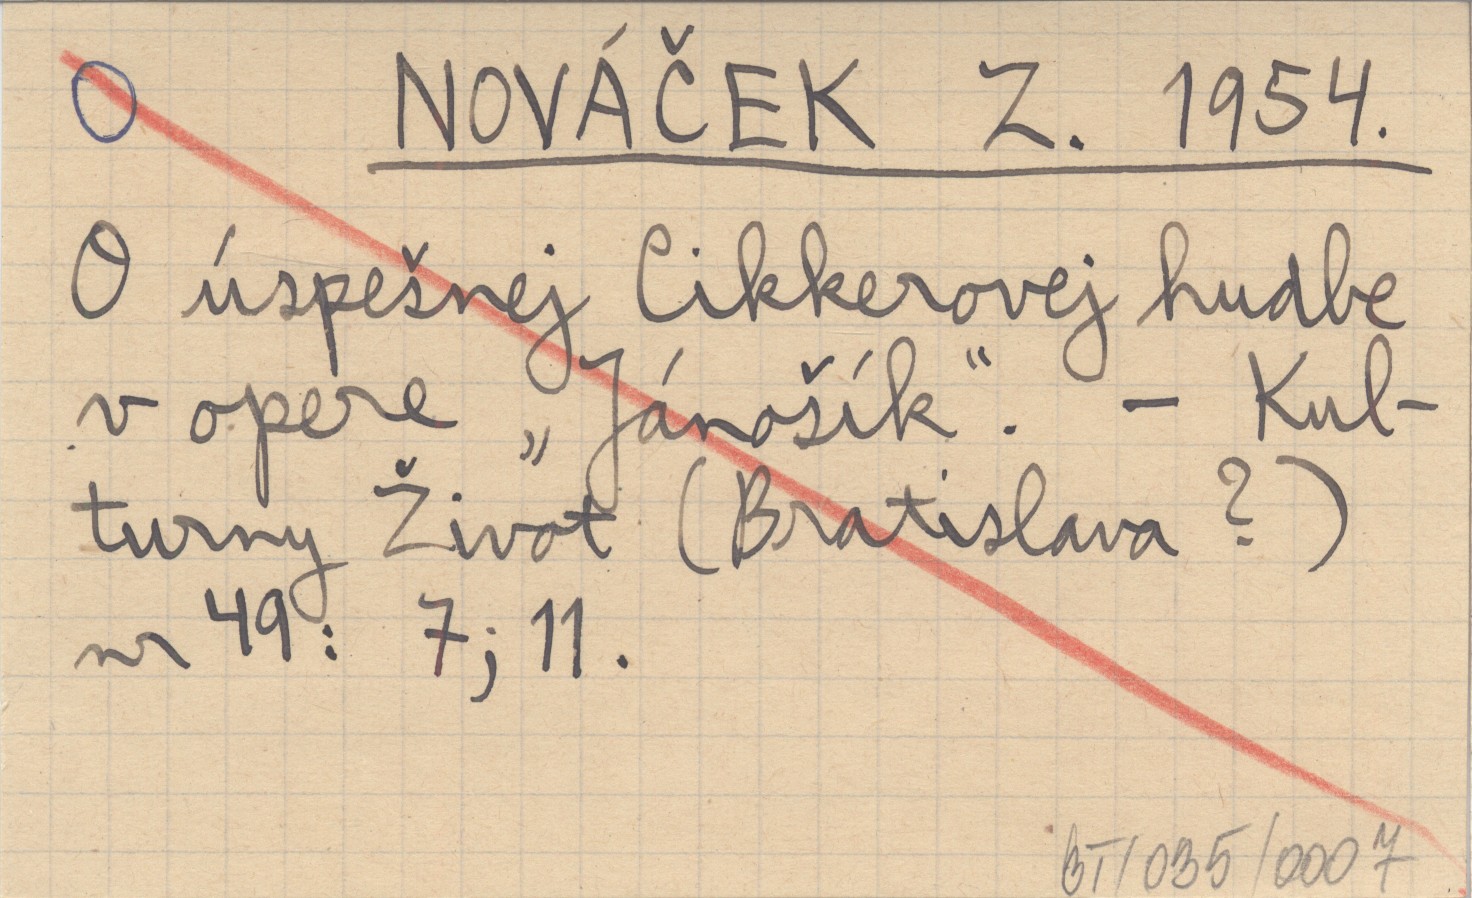 O NOVÁČEK Z. 1954.
O úspešnej Cikkerovej hudbe
v opere „Jánošík“. – Kul-
turny Život (Bratislava ?)
nr 49: 7; 11.
BT/035/0007